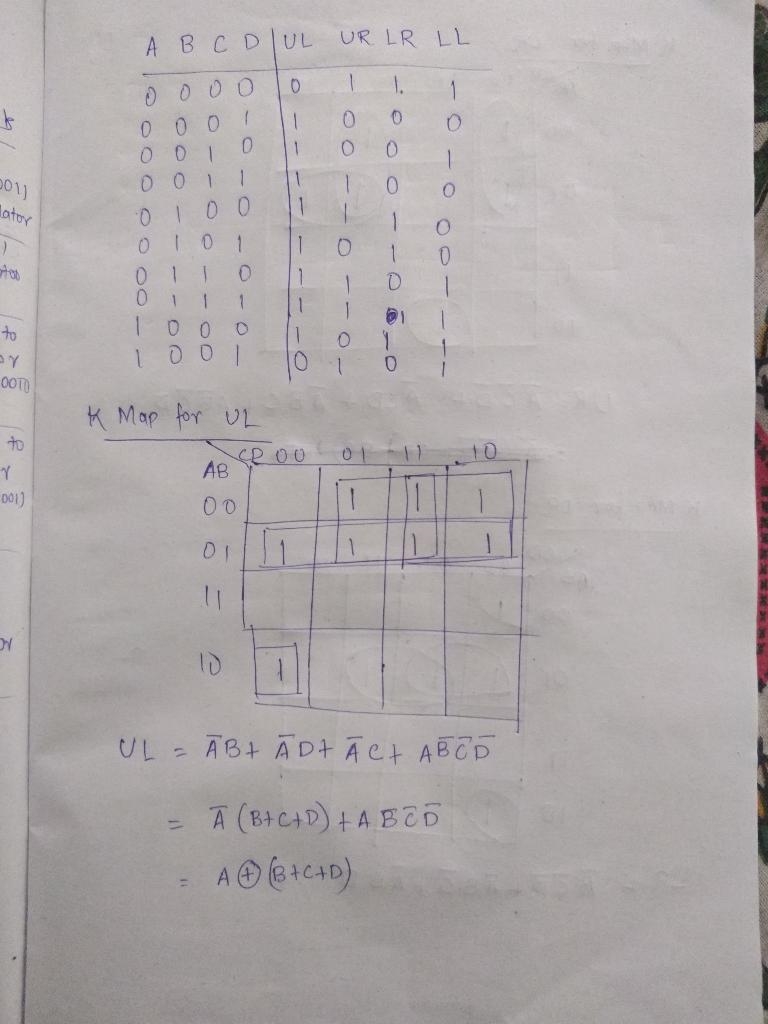 A B C D UL UR LR LL
0 0 0 0 0 1 1. 1
0 0 0 1 1 0 0 0
0 0 1 0 1 0 0 1
0 0 1 1 1 1 0 0
0 1 0 0 1 1 1 0
0 1 0 1 1 0 1 0
0 1 1 0 1 1 0 1
0 1 1 1 1 1 1 1
1 0 0 0 1 0 1 1
1 0 0 1 0 1 0 1
K Map for UL
CD 00 01 11 10
AB
00 1 1 1
01 1 1 1 1
11
10 1
UL = A̅B + A̅D + A̅C + AB̅C̅D̅
= A̅ (B+C+D) + A B̅C̅D̅
= A ⊕ (B+C+D)
001)
lator
to
0010
to
001)